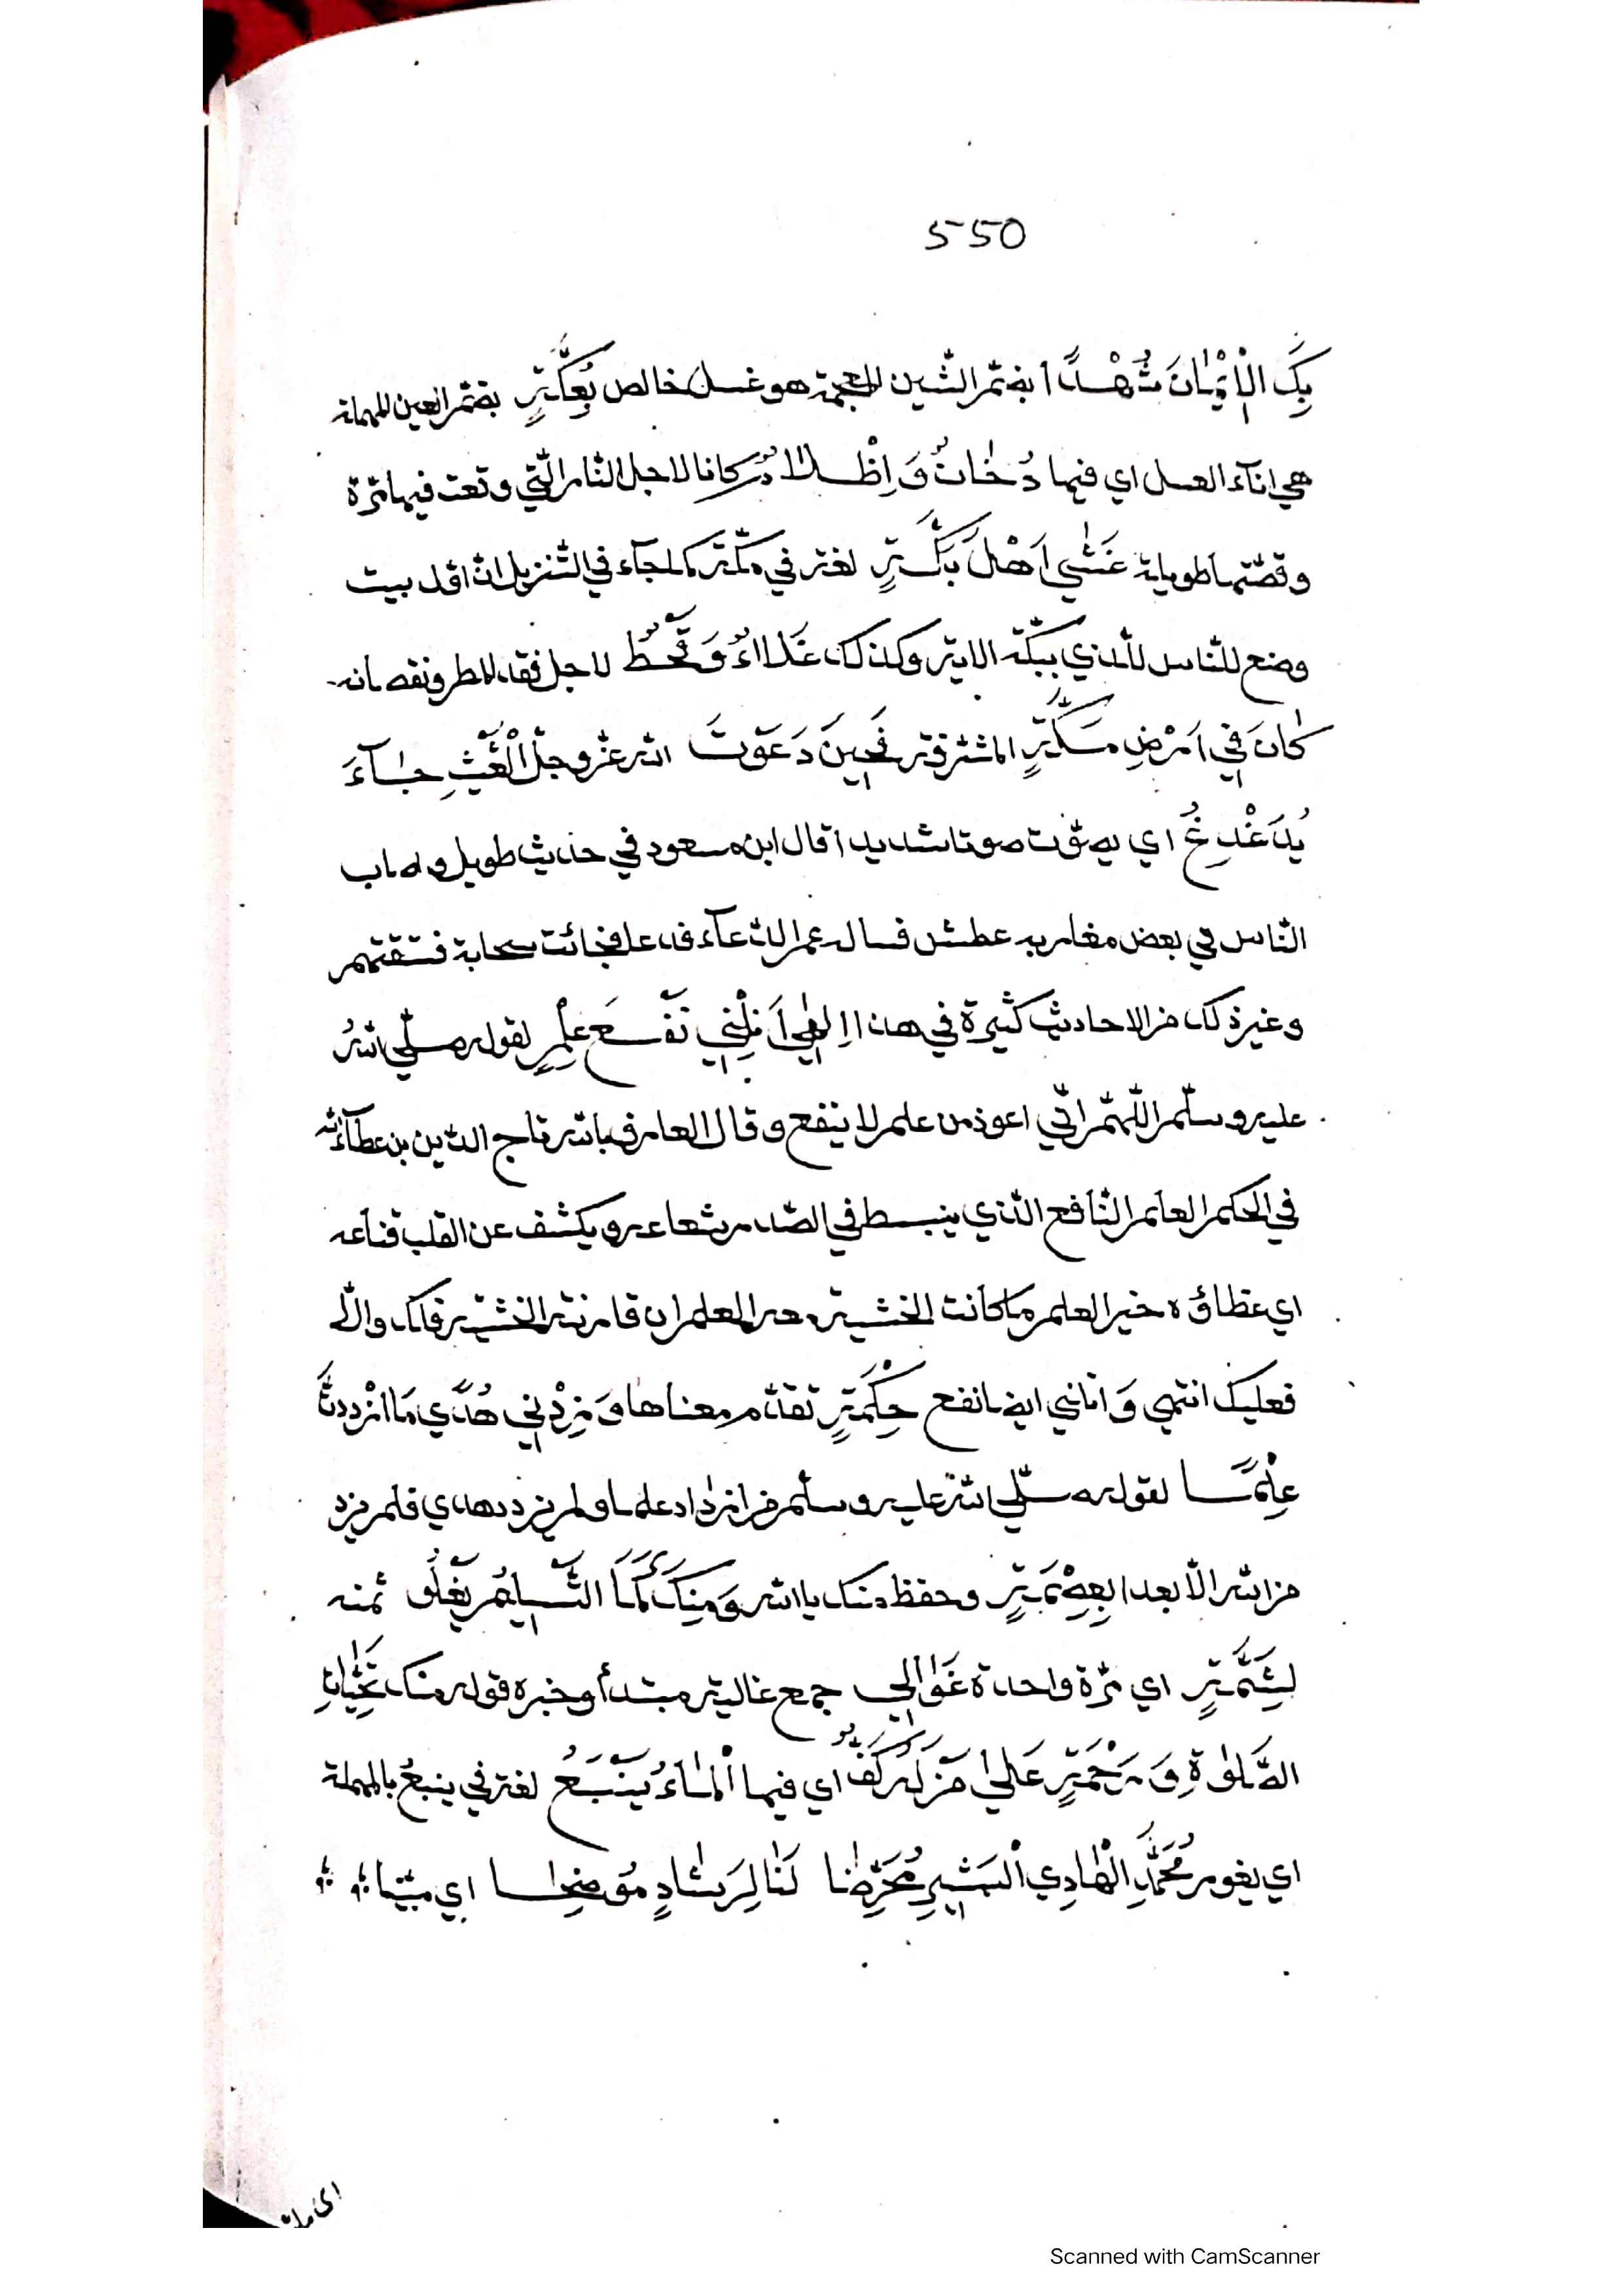 550
بِكَ الْاِيْمَانَ شُهْدًا بضمّ الشّين المعجمة هو عسل خالص بِعُكَّةٍ بضمّ العين المهملة
هي انآء العسل اي فيها دُخَانٌ وَ اِظْلَالٌ كانا لاجل النّار الّتي وقعت فيها مرّة
وقصّتها طويلة غَشٰي اَهْلَ بَكَّةٍ لغة في مكّة كما جآء في التّنزيل انّ اوّل بيت
وضع للنّاس للّذي ببكّة الاية وكذلك غَلَاءٌ وَقَحْطٌ لاجل فقد المطر ونقصانه
كَانَ فِي اَرْضِ مَكَّةٍ المشرفة فَحِينَ دَعَوْتَ الله عزّ وجلّ الْغَيْثِ جَآءَ
يُدَغْدِغُ اي يصوّت صوتا شديدا قال ابن مسعود في حديث طويل واصاب
النّاس في بعض مغازيه عطش فساله عمر الدّعآء فدعا فجائت سحابة فسقتهم
وغير ذلك من الاحاديث كثيرة في هذا اِلٰهِي اَنِلْنِي نَفْعَ عِلْمٍ لقوله صلّي اللهُ
عليه وسلّم اللّهمّ انّي اعوذ من علم لا ينفع وقال العارف بالله تاج الدّين بن عطآء الله
في الحكم العلم النّافع الّذي ينبسط في الصّدر شعاعه ويكشف عن القلب قناعه
اي غطاؤه خير العلم ما كانت الخشية معه العلم ان قارنته الخشية فلك والّا
فعليك انتهي وَ انلني ايضا نفع حِكْمَةٍ تقدّم معناها وَ زِدْنِي هُدًي مَا ازْدَدتُّ
عِلْمًا لقوله صلّي الله عليه وسلّم من ازداد علما ولم يزدد هدي فلم يزدد
من الله الّا بعدا بِعِصْمَةٍ وحفظ منك يا الله وَمِنْكَ كَمَا التَّسْلِيمُ يَغْلُو ثمنه
لِشَمَّةٍ اي مرّة واحدة غَوَالِي جمع غالية مبتدأ وخبره قوله منك تَحِيَّاتِ
الصَّلٰوةِ وَ رَحْمَةٍ عَلٰي مَنْ لَهُ كَفٌّ اي فيها الْمَاءُ يَنْبَعُ لغة في ينبغ بالمهملة
اي يفور مُحَمَّدٍ الْهَادِي الْبَشِيرِ مُحَرِّضًا لَنَا لِرَشَادٍ مُوضِحًا اي مبيّنا